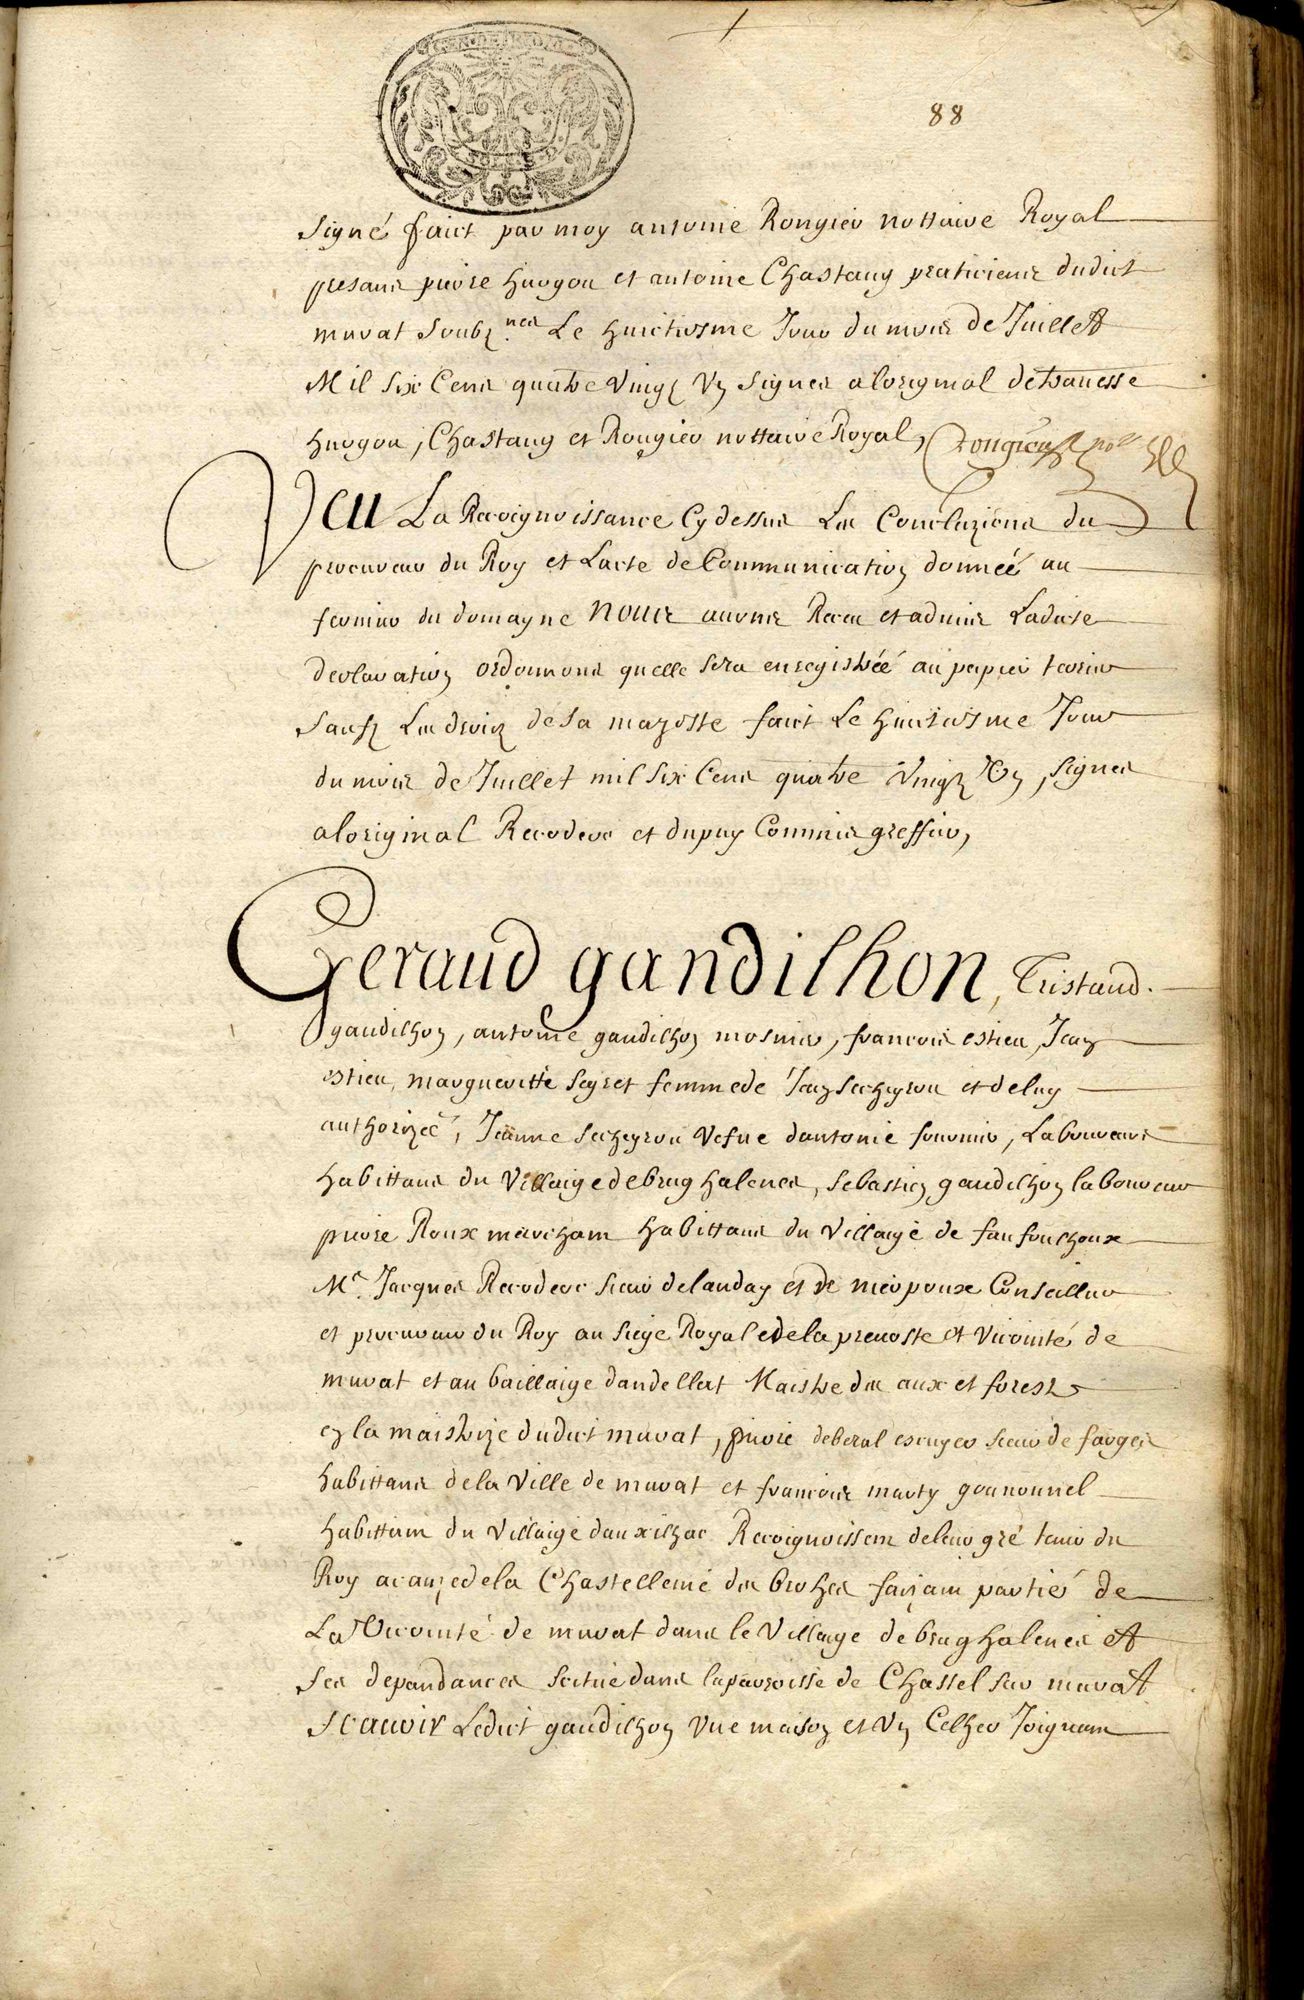 88
signé faict par moy antoine Rougier nottaire Royal
presans pierre hugon et antoine Chastang praticiens dudict
murat soubz.nes Le huictiesme Jour du mois de Juillet
Mil six Cens quatre vingz Un signes a loriginal de traverse
hugon, Chastang et Rougier nottaire Royal, Rougier
Veu La Recoignoissance Cy dessus Les Concluzions du
procureur du Roy et Lacte de Communication donneé au
fermier du domayne Nous avons Receu et admis Ladicte
declaration ordonnons quelle sera enregistreé au papier terrier
saufz Les droiz de sa mageste faict Le huictiesme Jour
du mois de Juillet mil six Cens quatre vingz Un, signes
a loriginal Recoderc et dupuy Commis greffier,
Geraud gandilhon, Tristand
gandilhon, antoine gandilhon mosnier, francois estieu, Jean
estieu, margueritte seyret femme de Jean sacheyrou et de luy
authorizeé, Jeanne sacheyrou vefue dantonie fournier, Laboureurs
habittans du Villaige de brughalenes, sebastien gandilhon laboureur
pierre Roux marcham habittans du Villaige de fanfoulhoux
Mr. Jacques Recoderc sieur delauday et de niropoux Conseiller
et procureur du Roy au siege Royal de la prevoste et Vicomté de
murat et au baillaige dandellat Maistre des aux et forestz
en la maistrize dudict murat, pierre deberal escuyer sieur de farges
habittans de la Ville de murat et francois marty gounounel
habittam du Villaige dauxilhac Recoignoissem de leur gre tenir du
Roy a cauze de la Chastellenie des brohes faizam partié de
La Vicomté de murat dans le Village de brughalenes et
ses dependances scitue dans la parroisse de Chastel sur murat
Scauoir Ledict gandilhon Une maison et Un Celher Joignam